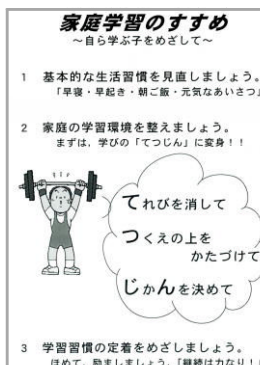 家庭学習のすすめ
～自ら学ぶ子をめざして～
1 基本的な生活習慣を見直しましょう。
「早寝・早起き・朝ご飯・元気なあいさつ」
2 家庭の学習環境を整えましょう。
まずは、学びの「てつじん」に変身！！
てれびを消して
つくえの上を
かたづけて
じかんを決めて
3 学習習慣の定着をめざしましょう。
ほめて、励ましましょう。「継続は力なり！」